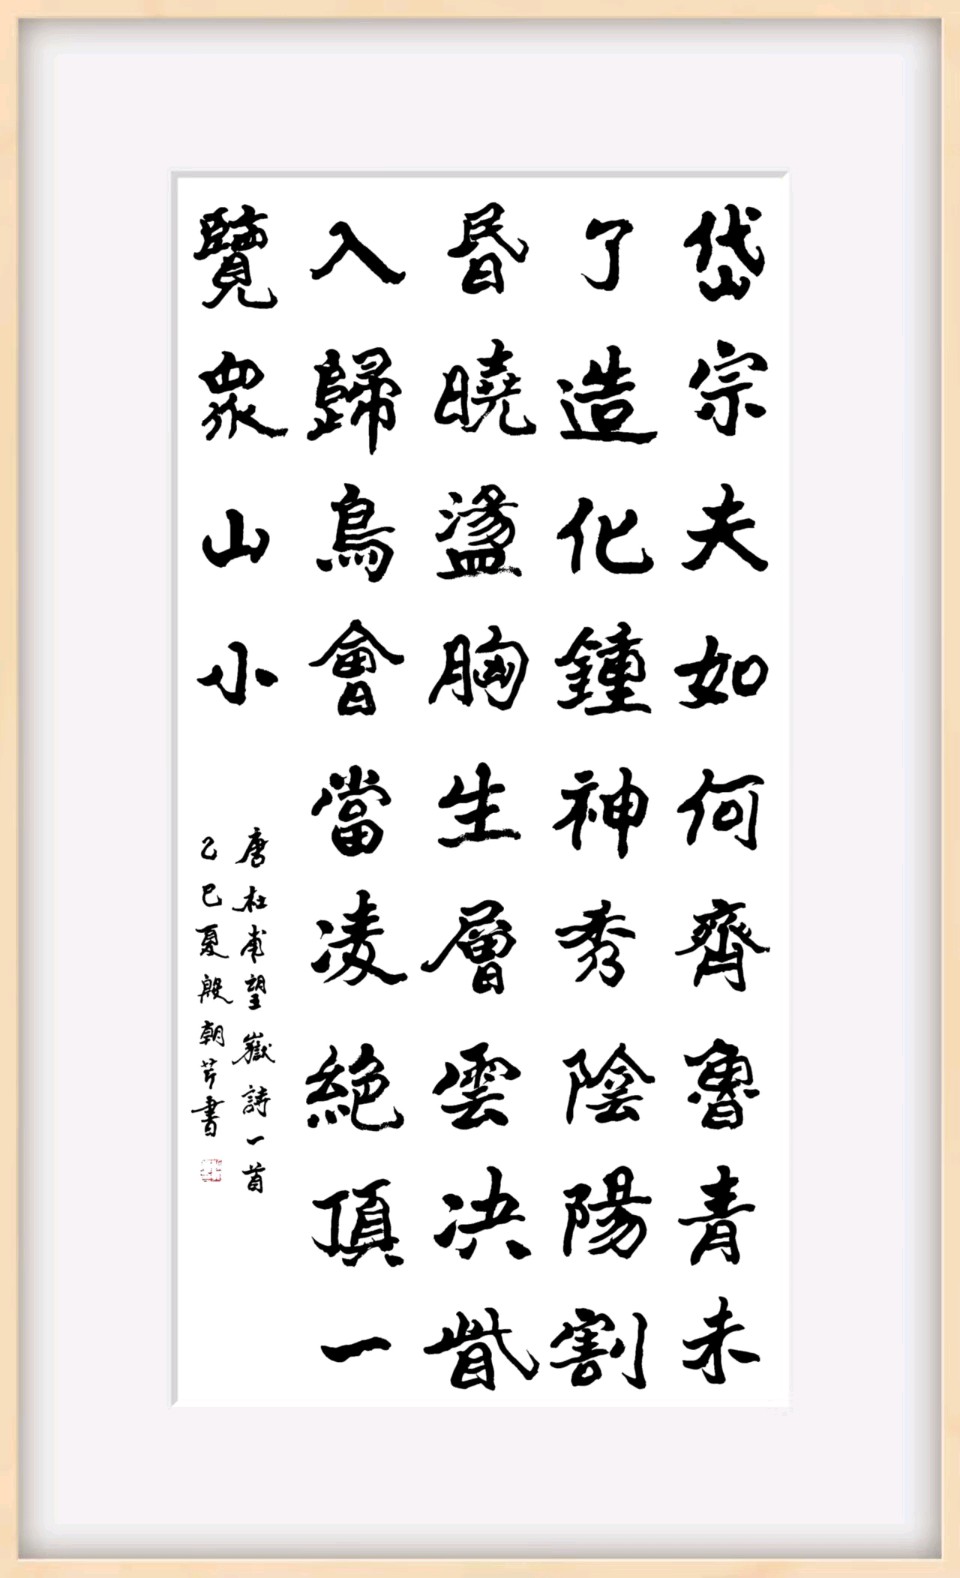 岱宗夫如何齊魯青未
了造化鍾神秀陰陽割
昬曉盪胸生層雲決眥
入歸鳥會當凌絕頂一
覽衆山小
唐杜甫望嶽詩一首
乙巳夏殷朝芹書